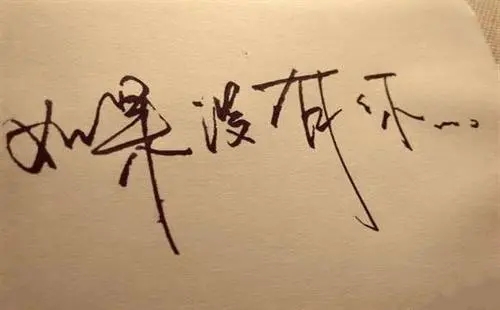 如果没有你...